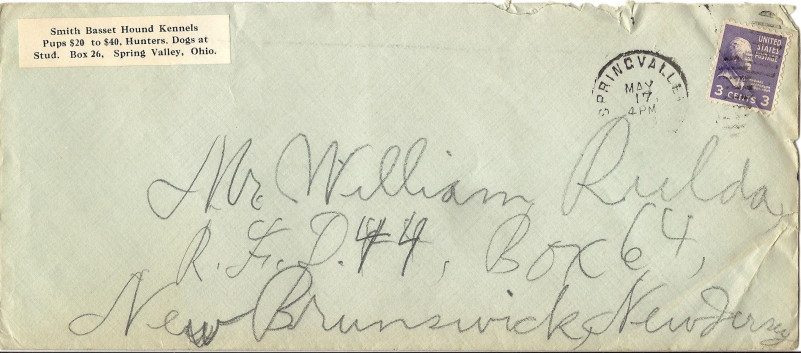 Smith Basset Hound Kennels
Pups $20 to $40, Hunters. Dogs at
Stud. Box 26, Spring Valley, Ohio.
SPRING VALLEY
MAY
17
4 PM
UNITED
STATES
POSTAGE
3 CENTS 3
Mr. William Rulda
R. F. D. #4, Box 64,
New Brunswick, New Jersey